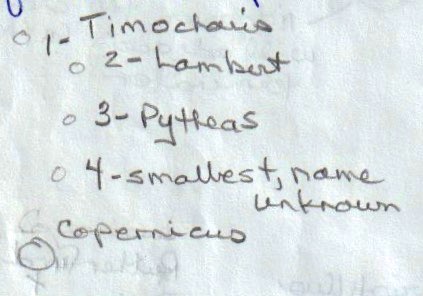 1- Timocharis
2- Lambert
3- Pytheas
4- smallest, name
unknown
Copernicus